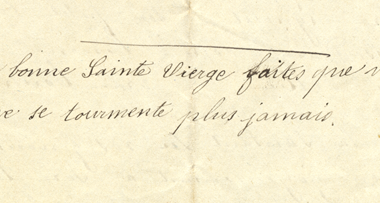 bonne Sainte Vierge faites que
se tourmente plus jamais.